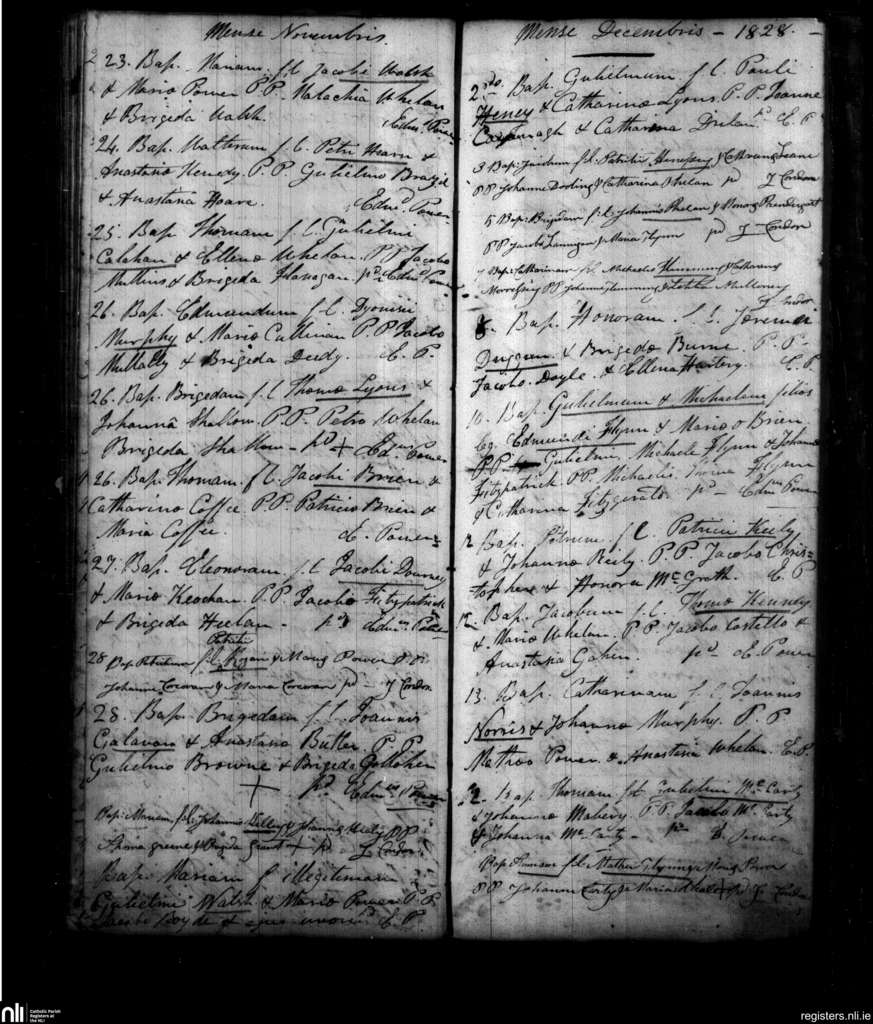 Mense Novembris.
23. Bap. Mariam f. l. Jacobi Walsh
& Maria Power P.P. Malachia Whelan
& Brigida Walsh. Edmd. Power
24. Bap. Walterum f. l. Petri Hearn &
Anastasia Kenedy. P.P. Gulielmo Brazil
& Anastatia Hoare. Edmd. Power
25. Bap. Thomam f. l. Gulielmi
Calahan & Ellena Whelan P.P. Jacobo
Mullins & Brigida Flanagan. pd. Edmd. Power
26. Bap. Edmundum f. l. Dyonisii
Murphy & Maria Cullinan P.P. Jacobo
Mullally & Brigeda Deedy. E. P.
26. Bap. Brigedam f. l. Thoma Lyons &
Johanna Shallow. P.P. Petro Whelan
Brigeda Shallow - pd + Edmd. Power
26. Bap. Thomam. f. l. Jacobi Brien &
Catharina Coffee P.P. Patricio Brien &
Maria Coffee. E. Power
27. Bap. Eleonoram. f. l. Jacobi Downey
& Maria Keoghan. P.P. Jacobo Fitzpatrick
& Brigeda Heelan - pd Edmd. Power
Patricii
28 Bap. f. l. Ryan & Mary Power P.P.
Johanne Corcoran & Maria Corcoran pd - J Condon
28. Bap. Brigedam f. l. Joannis
Galavan & Anastasia Butler. P.P.
Gulielmo Browne & Brigeda
+ pd. Edmd. Power
Bap. Mariam f. l. Johannis Kelly & P.P.
Thoma greene & Brigida Grant + pd J Condon
Bap. Mariam f. illegitimam
Gulielmi Walsh & Maria Power P.P.
Jacobo & E. P.
Mense Decembris - 1828. -
2do. Bap. Gulielmum f. l. Pauli
Heney & Catharina Lyons. P.P. Joanne
Cavanagh & Catharina pd E. P
3 Bap: f. l. Patricii Henessy & Keane
PP Johanne Dooling & Catharina Phelan pd J Condon
5 Bap: Brigidam f. l. Johannis Phelan & Honora Prendergast
PP Jacobo Lannigan & Maria Flynn pd J Condon
7 Bap: Catharinam f. l. Michaelis Flemming & Catharina
Morrissey PP Johanne Flemming & Mullowney
J Condon
8. Bap. Honoram f. l. Jeremia
Duggan & Brigeda Burne. P.P.
Jacobo Doyle & Ellena Hartery. E. P.
10. Bap. Gulielmum & Michaelem filios
leg. Edmundi Flynn & Maria o Brien
P.P. Gulielmi, Michaele Flynn & Johanna
Fitzpatrick P.P. Michaelis, Flynn
& Catharina Fitzgerald pd - Edmd Power
12 Bap. Petrum f. l. Patricii Keily
& Johanna Reily. P.P. Jacobo Chris=
topher & Honora McGrath. E. P
12. Bap. Jacobum f. l. Thoma Kenney
& Maria Whelan. P.P. Jacobo Costello &
Anastasia Gahen. pd. E. Power
13. Bap. Catharinam f. l. Joannis
Norris & Johanna Murphy. P.P
Matheo Power & Anastasia Whelan. E. P.
12. Bap. Thomam f. l. Gulielmi McCarty
& Johanna P.P. Jacobo McCarty
& Johanna McCarty - pd E. Power
Bap: f. l. Mathei & Power
PP Johanne Carty & Maria pd J Condon
nli
Catholic Parish
Registers at
the NLI
registers.nli.ie